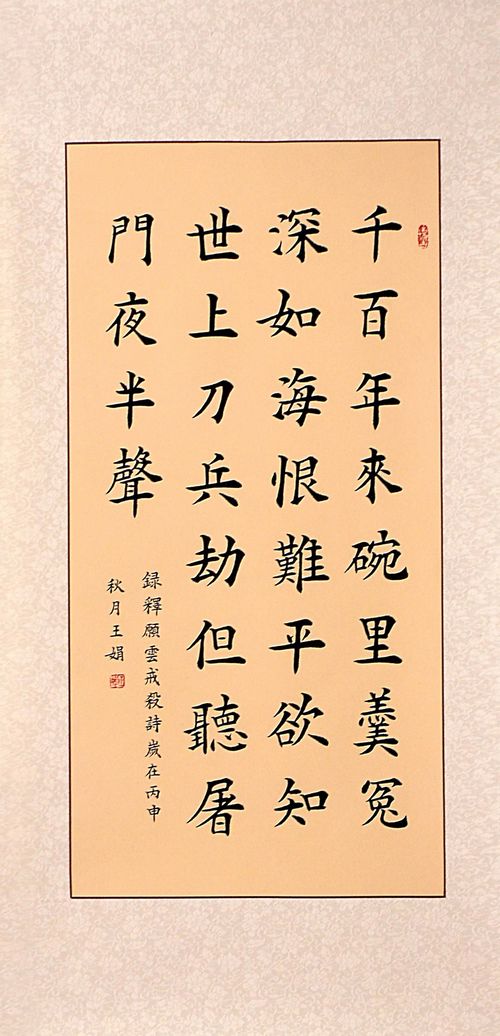 千百年來碗里羹冤
深如海恨難平欲知
世上刀兵劫但聽屠
門夜半聲
録釋願雲戒殺詩歲在丙申
秋月王娟